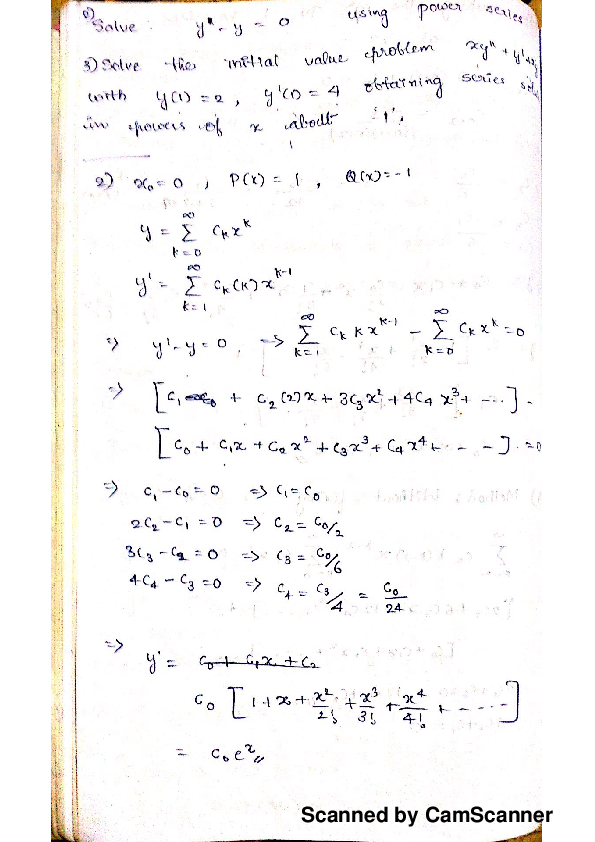 Solve y" - y = 0 using power series
3) Solve the initial value problem xy" + y' +
with y(1) = 2, y'(1) = 4 obtaining series
in powers of x about '1'.
2) x₀ = 0, P(x) = 1, Q(x) = -1
y = ∑_{k=0}^{∞} cₖ x^k
y' = ∑_{k=1}^{∞} cₖ (k) x^{k-1}
⇒ y' - y = 0 ⇒ ∑_{k=1}^{∞} cₖ k x^{k-1} - ∑_{k=0}^{∞} cₖ x^k = 0
⇒ [c₁ + c₂(2)x + 3c₃x² + 4c₄x³ + ---] -
[c₀ + c₁x + c₂x² + c₃x³ + c₄x⁴ + - - -] = 0
⇒ c₁ - c₀ = 0 ⇒ c₁ = c₀
2c₂ - c₁ = 0 ⇒ c₂ = c₀/2
3c₃ - c₂ = 0 ⇒ c₃ = c₀/6
4c₄ - c₃ = 0 ⇒ c₄ = c₃/4 = c₀/24
⇒ y' = c₀ + c₁x + c₂
c₀ [1 + x + x²/2! + x³/3! + x⁴/4! + - - - -]
= c₀ e^x //
Scanned by CamScanner